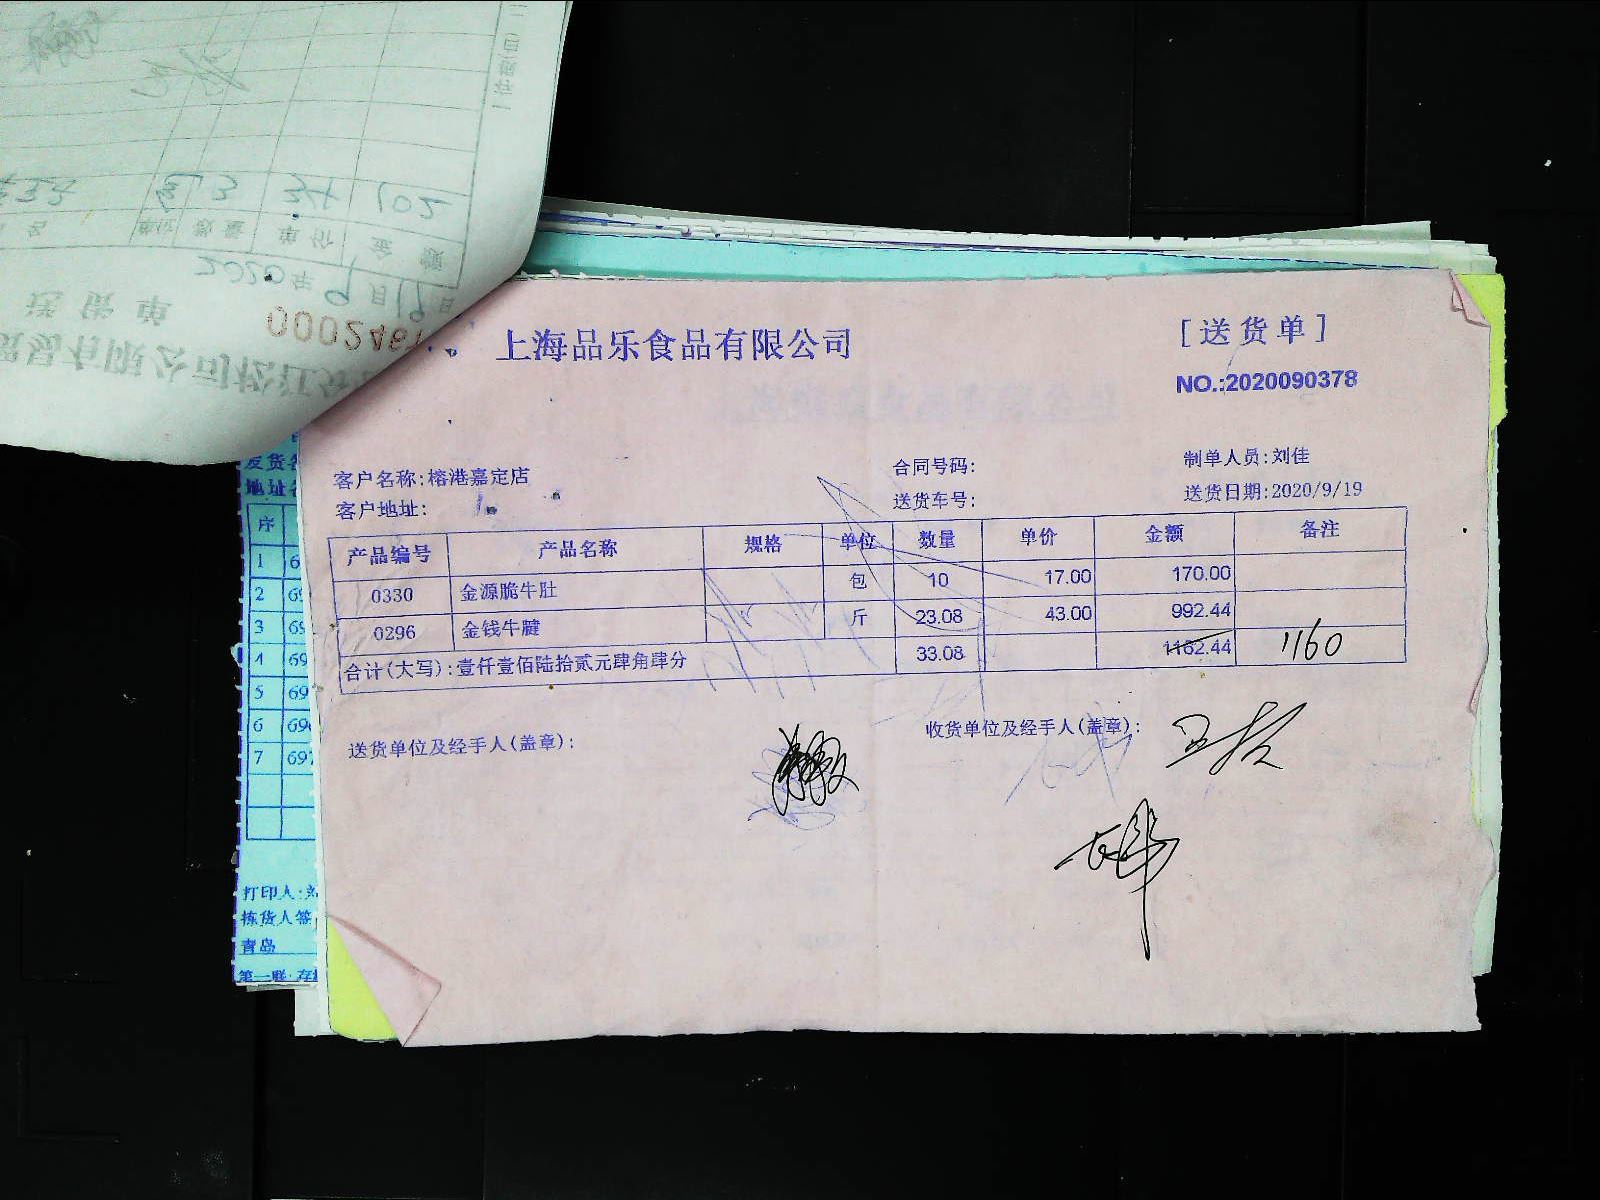 上海品乐食品有限公司
[送货单]
NO.:2020090378
客户名称:榕港嘉定店 合同号码: 制单人员:刘佳
客户地址: 送货车号: 送货日期:2020/9/19
产品编号 产品名称 规格 单位 数量 单价 金额 备注
0330 金源脆牛肚 包 10 17.00 170.00
0296 金钱牛腱 斤 23.08 43.00 992.44
合计(大写):壹仟壹佰陆拾贰元肆角肆分 33.08 1162.44 1160
送货单位及经手人(盖章): 收货单位及经手人(盖章):
送货单
2020年9月19日
单位 数量 单价 金额
3 34 102
地址
序
1
2
3
4
5
6
7
打印人:
拣货人签
青岛
第一联